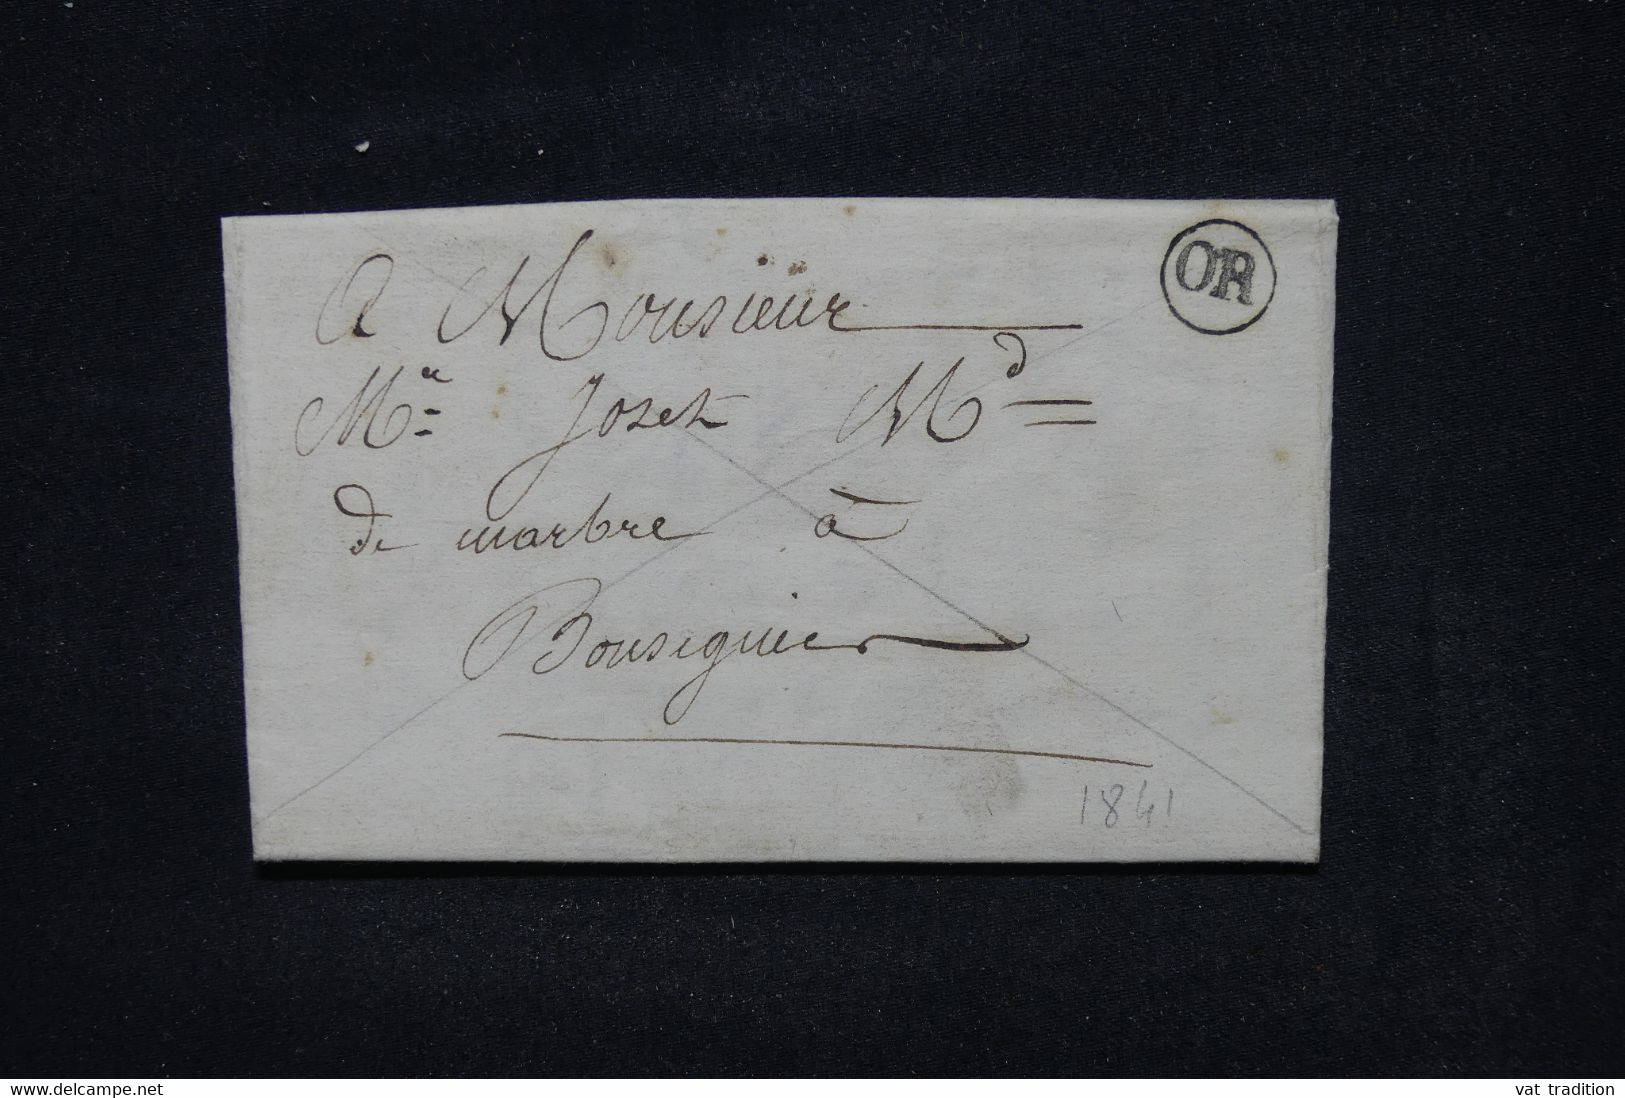 OR
A Monsieur
Mr Jozet Md
de marbre à
Bousignies
1841
www.delcampe.net
vat tradition